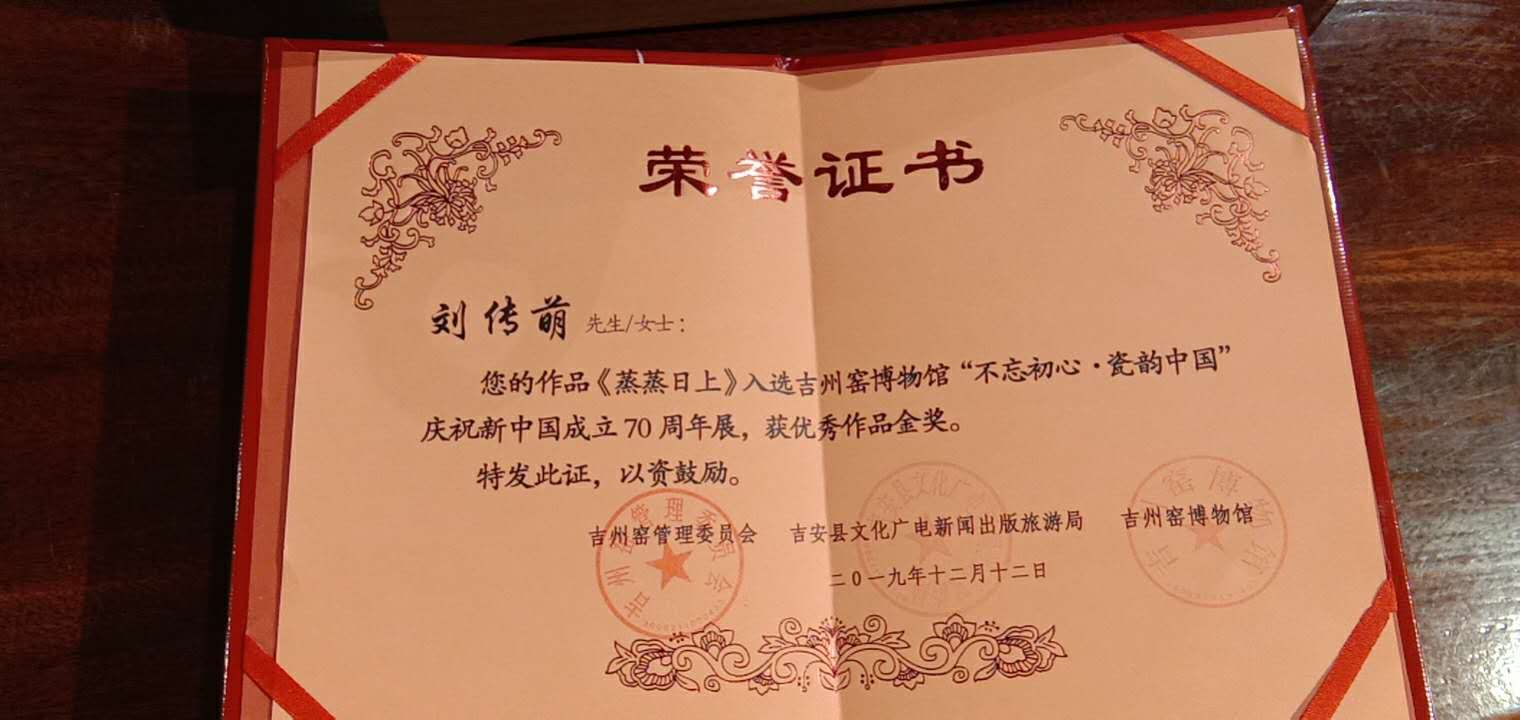 荣誉证书
刘传萌 先生/女士：
您的作品《蒸蒸日上》入选吉州窑博物馆“不忘初心·瓷韵中国”
庆祝新中国成立70周年展，获优秀作品金奖。
特发此证，以资鼓励。
吉州窑管理委员会 吉安县文化广电新闻出版旅游局 吉州窑博物馆
二0一九年十二月十二日
吉州窑管理委员会
吉安县文化广
吉州窑博物馆